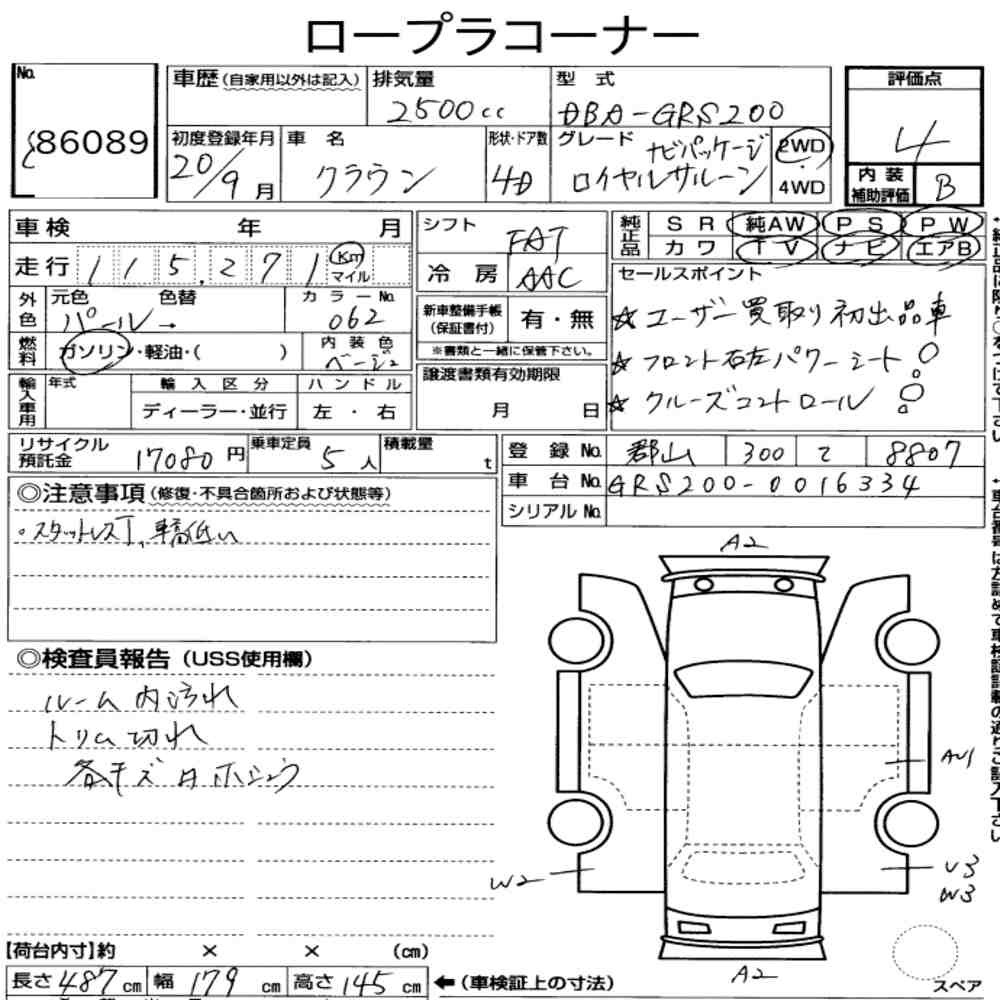 ロープラコーナー
No. 86089
車歴(自家用以外は記入) 排気量 2500cc 型式 DBA-GRS200
初度登録年月 20/9月 車名 クラウン 形状・ドア数 4D グレード ナビパッケージ ロイヤルサルーン 2WD・4WD
評価点 4
内装補助評価 B
車検 年 月
走行 115,271 Km マイル
シフト FAT
冷房 AAC
純正品 SR 純AW PS PW
カワ TV ナビ エアB
外色 元色 パール→ 色替 カラーNo. 062
燃料 ガソリン・軽油・( ) 内装色 ベージュ
新車整備手帳(保証書付) 有・無
※書類と一緒に保管下さい。
セールスポイント
☆ユーザー買取り初出品車
☆フロント右左パワーシート
☆クルーズコントロール
輸入車用 年式 輸入区分 ディーラー・並行 ハンドル 左・右
譲渡書類有効期限 月 日
リサイクル預託金 17080円 乗車定員 5人 積載量 t
登録No. 郡山 300 て 8807
車台No. GRS200-0016334
シリアルNo.
◎注意事項(修復・不具合箇所および状態等)
・スタットレスT、車高低い
◎検査員報告(USS使用欄)
ルーム内汚れ
トリム切れ
各キズ
A2
AU1
W2
U3
W3
A2
スペア
【荷台内寸】約 × × (cm)
長さ 487cm 幅 179cm 高さ 145cm ←(車検証上の寸法)